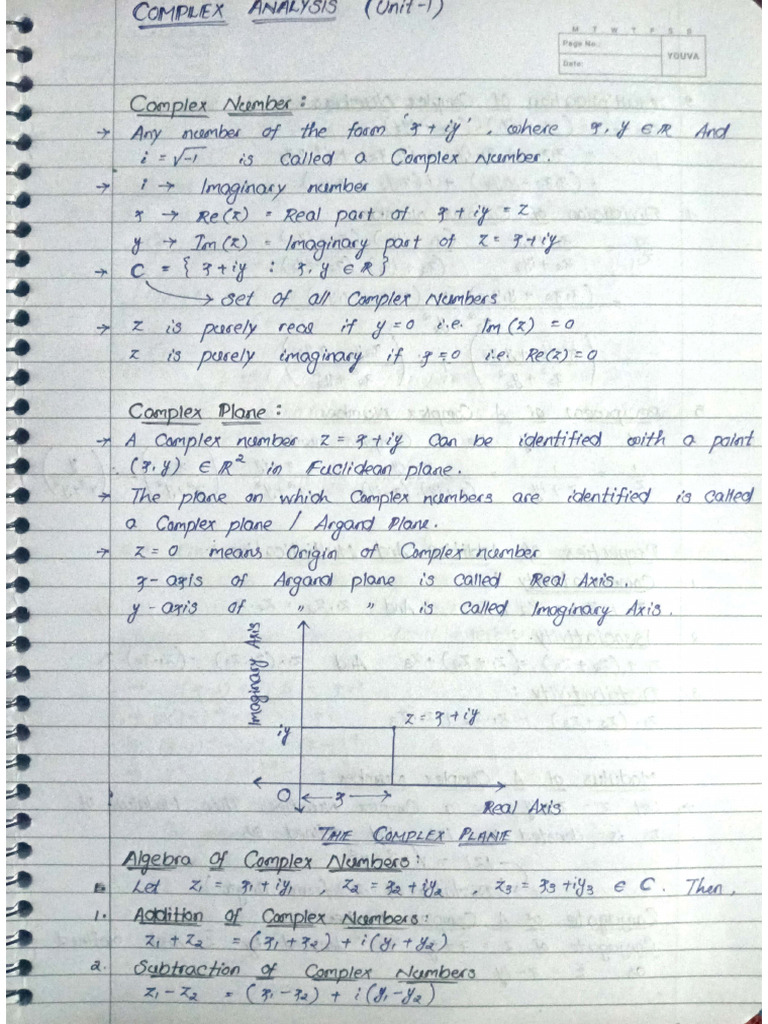 COMPLEX ANALYSIS (Unit-1)
M T W T F S S
Page No.:
YOUVA
Date:
Complex Number :
→ Any number of the form 'x + iy', where x, y ∈ R And
i = √-1 is called a Complex Number.
→ i → Imaginary number
x → Re(z) = Real part of x + iy = z
y → Im(z) = Imaginary part of z = x + iy
→ C = { x + iy : x, y ∈ R }
→ Set of all Complex Numbers
→ z is purely real if y = 0 i.e. Im(z) = 0
z is purely imaginary if x = 0 i.e. Re(z) = 0
Complex Plane :
→ A Complex number z = x + iy can be identified with a point
(x, y) ∈ R² in Euclidean plane.
→ The plane on which Complex numbers are identified is called
a Complex plane / Argand Plane.
→ z = 0 means Origin of Complex number
x - axis of Argand plane is called Real Axis.
y - axis of " " is called Imaginary Axis.
Imaginary Axis
z = x + iy
iy
O
x
Real Axis
THE COMPLEX PLANE
Algebra of Complex Numbers :
Let z₁ = x₁ + iy₁ , z₂ = x₂ + iy₂ , z₃ = x₃ + iy₃ ∈ C. Then,
1. Addition of Complex Numbers :
z₁ + z₂ = (x₁ + x₂) + i(y₁ + y₂)
2. Subtraction of Complex Numbers
z₁ - z₂ = (x₁ - x₂) + i(y₁ - y₂)